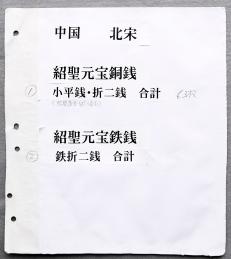 中国 北宋
紹聖元宝銅銭
① 小平銭・折二銭 合計
紹聖元宝鉄銭
② 鉄折二銭 合計